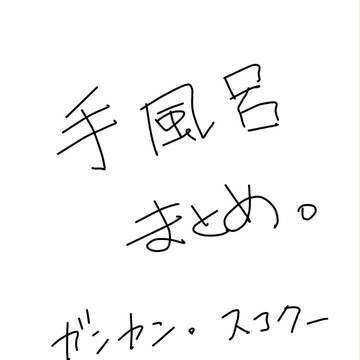 手風呂
まとめ。
ガンカン。スコクー